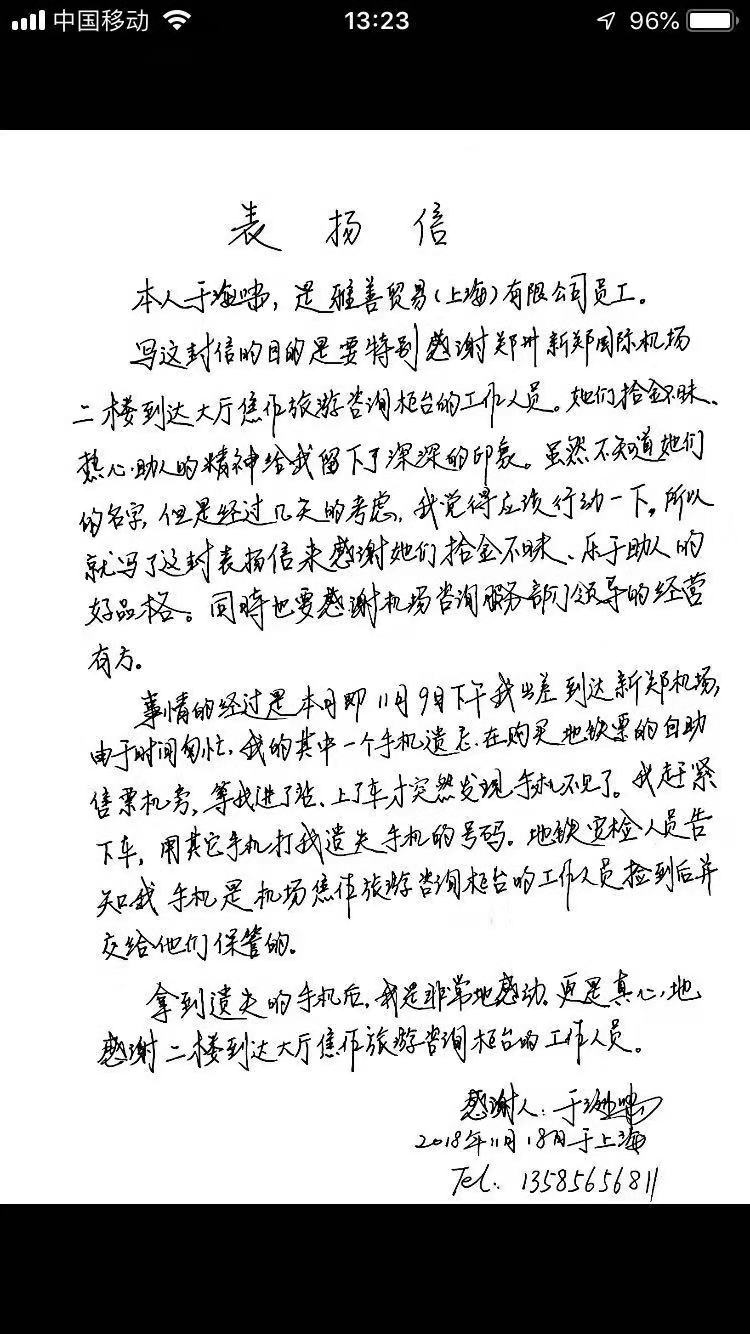 中国移动
13:23
96%
表扬信
本人于海啸，是雅善贸易（上海）有限公司员工。
写这封信的目的是要特别感谢郑州新郑国际机场
二楼到达大厅焦作旅游咨询柜台的工作人员。她们拾金不昧、
热心助人的精神给我留下了深深的印象。虽然不知道她们
的名字，但是经过几天的考虑，我觉得应该行动一下。所以
就写了这封表扬信来感谢她们拾金不昧、乐于助人的
好品格。同时也要感谢机场咨询服务部门领导的经营
有方。
事情的经过是本月即11月9日下午我出差到达新郑机场，
由于时间匆忙，我的其中一个手机遗忘在购买地铁票的自助
售票机旁，等我进了站、上了车才突然发现手机不见了。我赶紧
下车，用其它手机打我遗失手机的号码。地铁安检人员告
知我手机是机场焦作旅游咨询柜台的工作人员捡到后并
交给他们保管的。
拿到遗失的手机后，我是非常地感动，更是真心地
感谢二楼到达大厅焦作旅游咨询柜台的工作人员。
感谢人：于海啸
2018年11月18日于上海
Tel: 13585656811